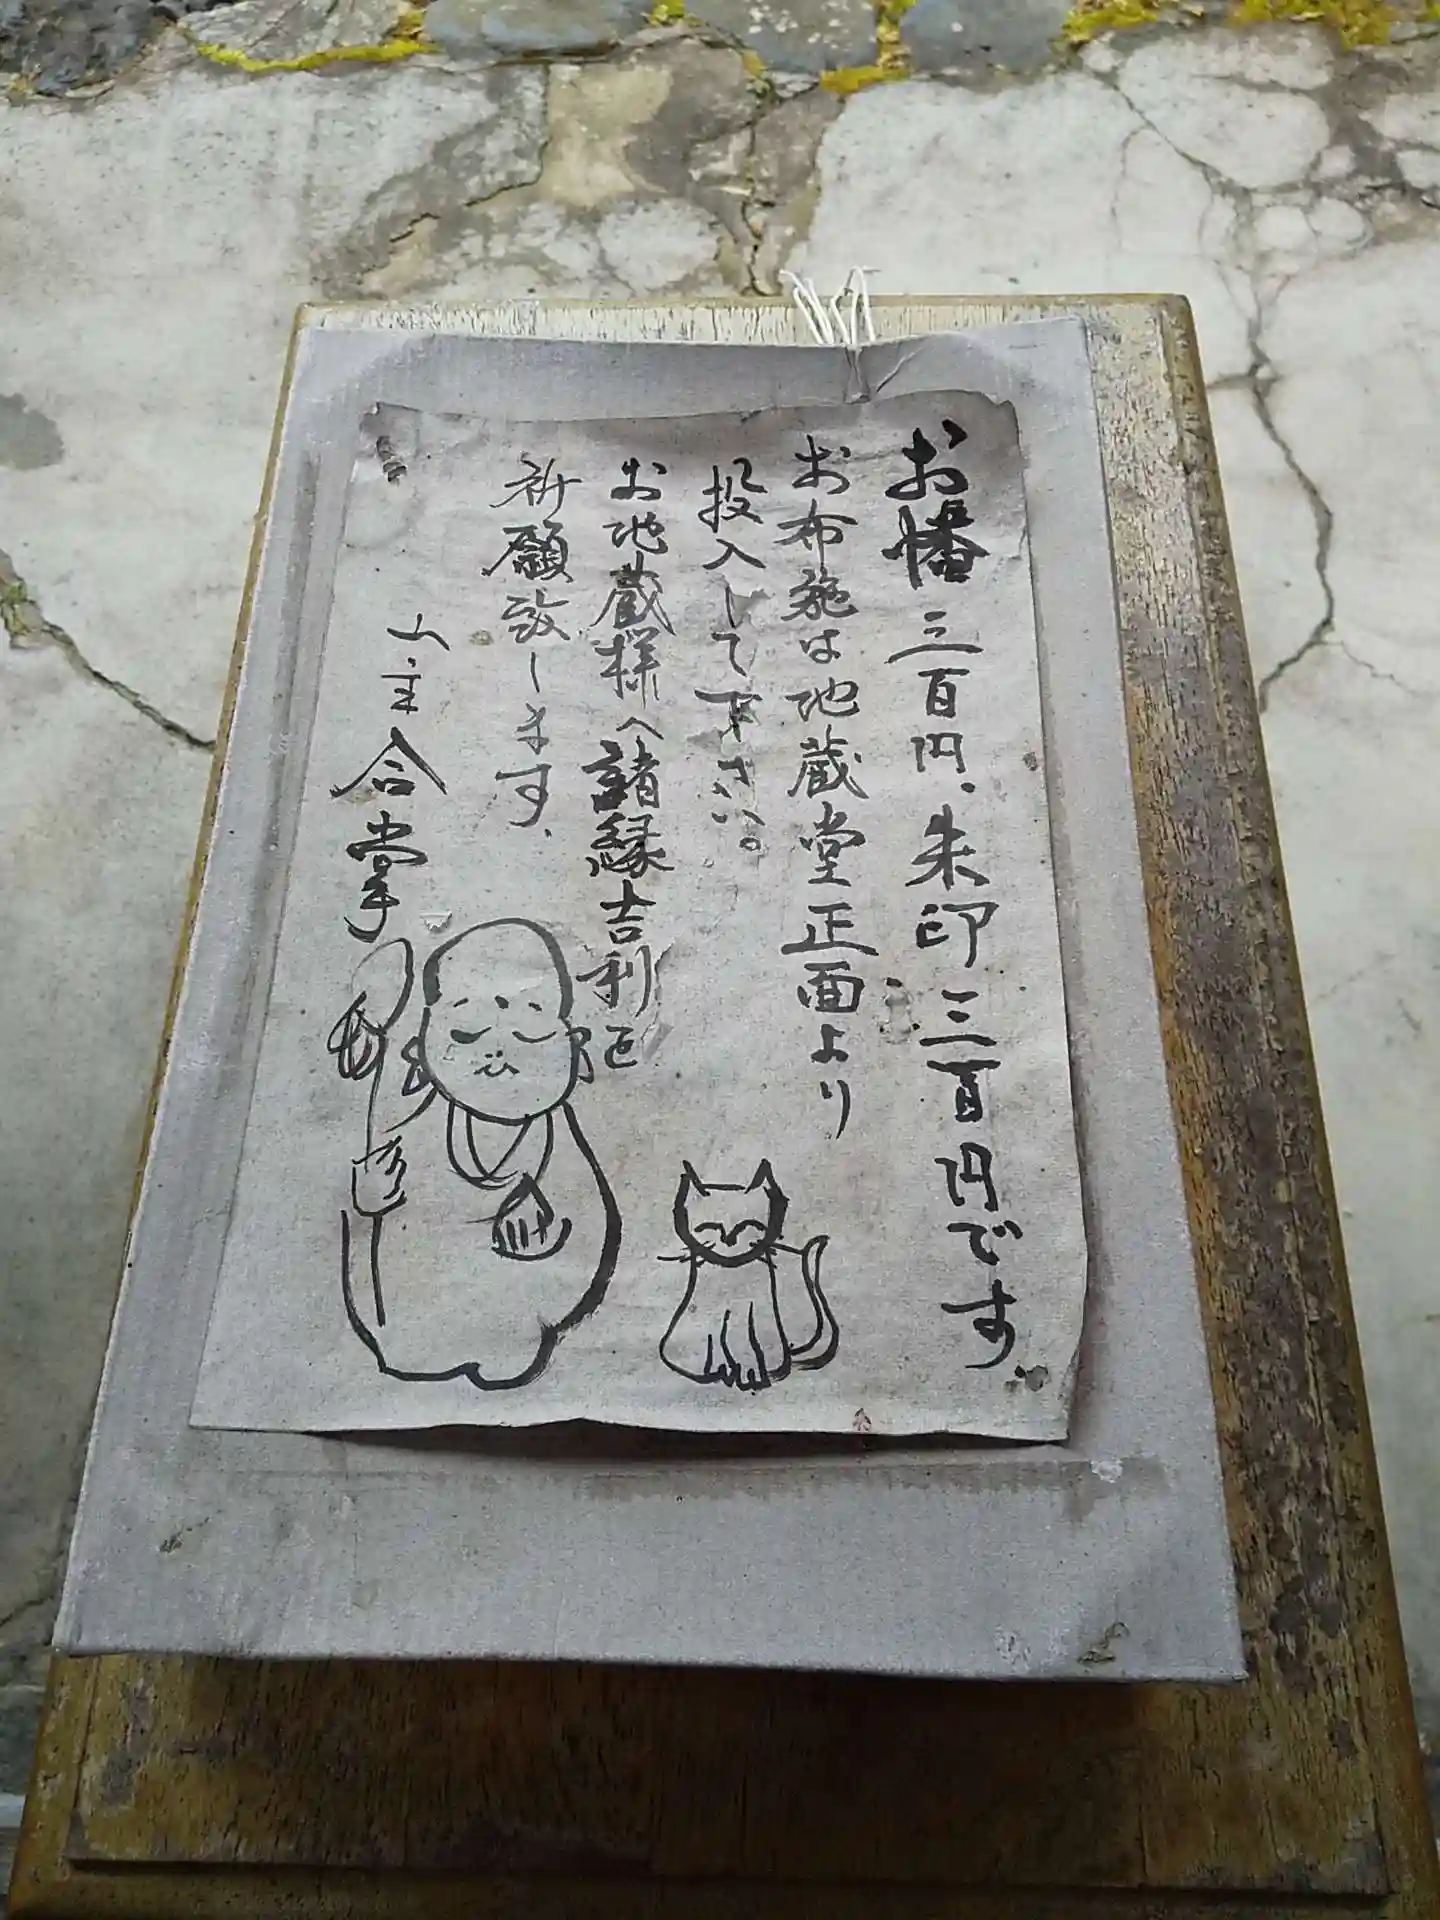 お幡三百円、朱印三百円です。
お布施は地蔵堂正面より
投入して下さい。
お地蔵様へ諸縁吉利を
祈願致します、
山主合掌